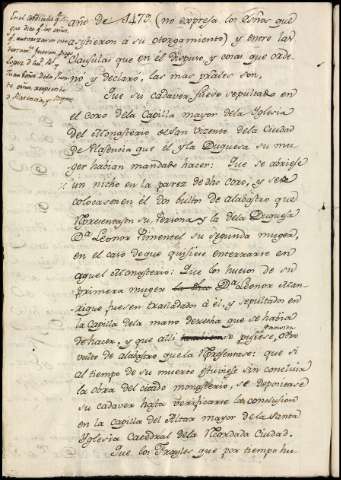 año de 1470 (no expresa los Esños que
asistieron á su otorgamiento) y entre las
Clausulas que en él dispuso, y cosas que orde
nó y declaró, las mas prâles son,
Que su cadaver fuese sepultado en
el coro dela Capilla mayor dela Iglesia
del Monasterio de San Vicente dela Ciudad
de Plasencia que él y la Duquesa su mu
ger habian mandado hacer: Que se abriese
un nicho en la pared de dho coro, y se
colocasen en él dos bultos de alabastro que
representasen su Persona y la dela Duquesa
Dª Leonor Pimentel su segunda muger,
en el caso de que quisiese enterrarse en
aquel Monasterio: Que los huesos de su
primera muger Dª Leonor Man
rique fuesen trasladados á él, y sepultados en
la Capilla dela mano derecha que se habia
de hacer, y que alli se pusiese otro
vulto de alabastro que la representase: que si
al tiempo de su muerte estuviese sin concluir
la obra del citado monasterio, se depositase
su cadaver hasta verificarse la conclusion
en la capilla del Altar mayor dela Santa
Iglesia Catedral dela Nombrada Ciudad.
Que los Frayles que por tiempo hu